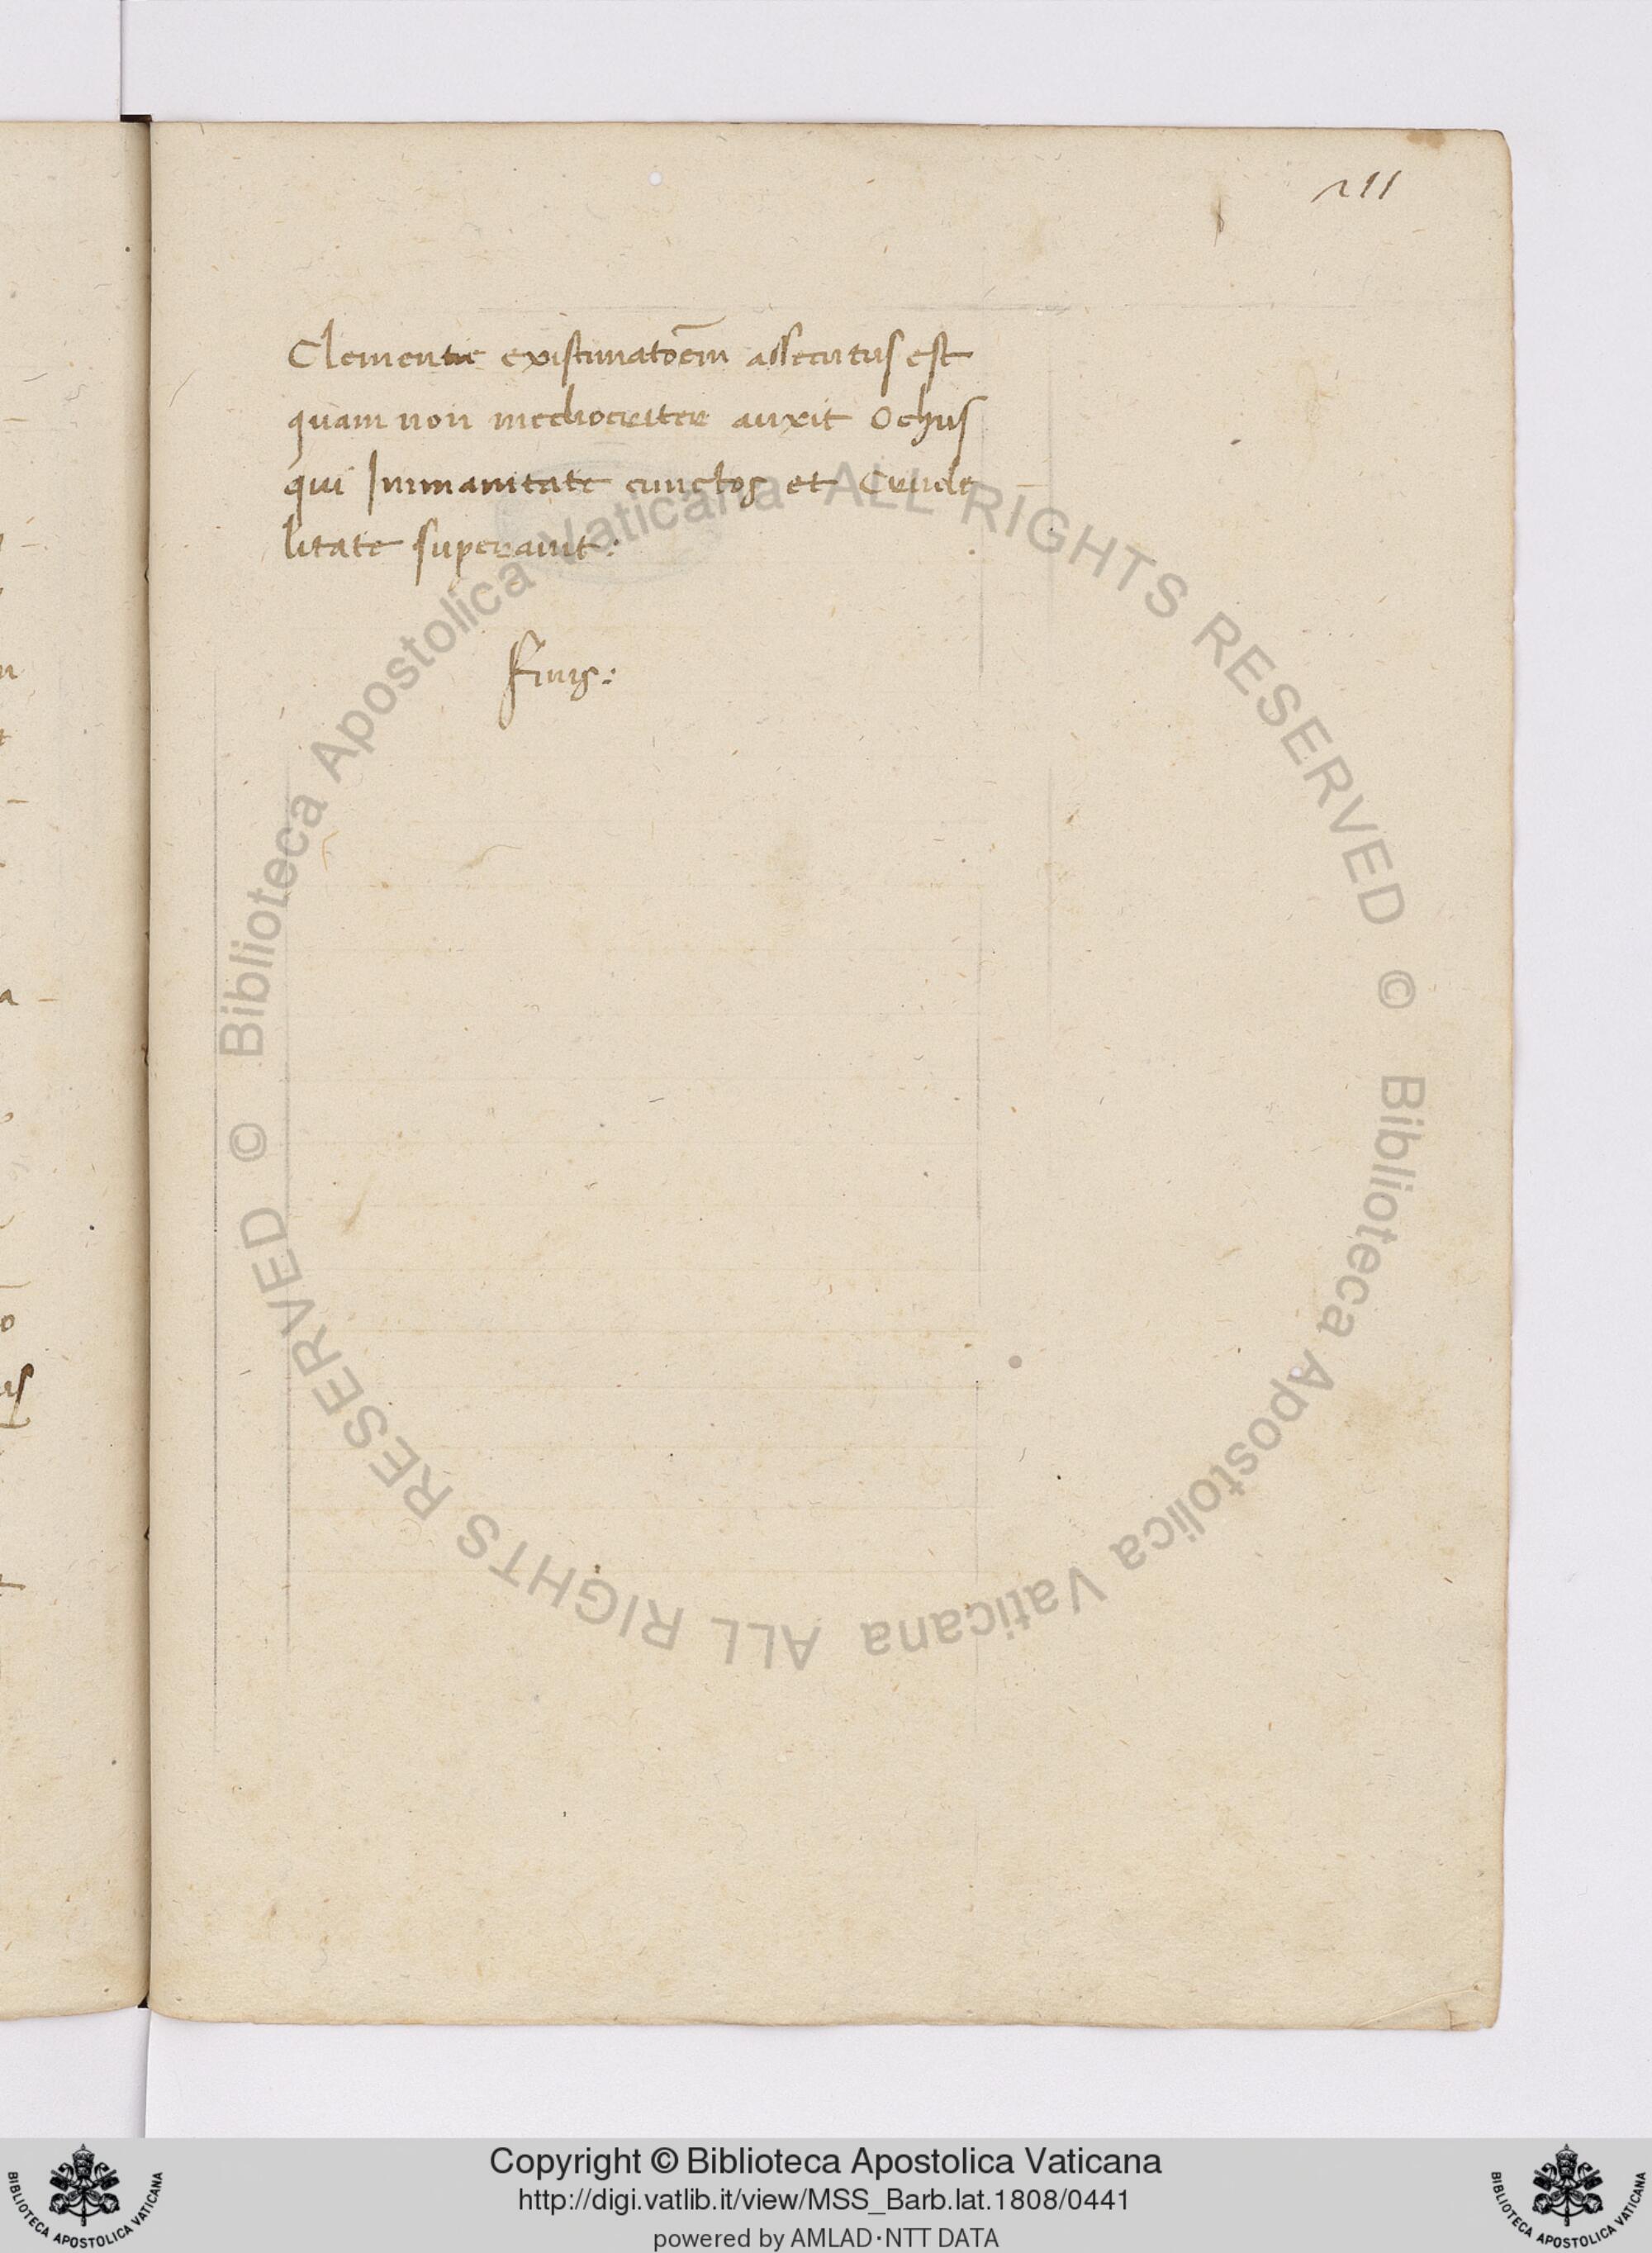 211
Clementie existimatōem assecutus est
quam non mediocriter auxit Ochus
qui Inmanitate cunctos et Crude
litate superauit:
Finis:
© Biblioteca Apostolica Vaticana ALL RIGHTS RESERVED
© Biblioteca Apostolica Vaticana ALL RIGHTS RESERVED
Copyright © Biblioteca Apostolica Vaticana
http://digi.vatlib.it/view/MSS_Barb.lat.1808/0441
powered by AMLAD·NTT DATA
BIBLIOTECA APOSTOLICA VATICANA
BIBLIOTECA APOSTOLICA VATICANA